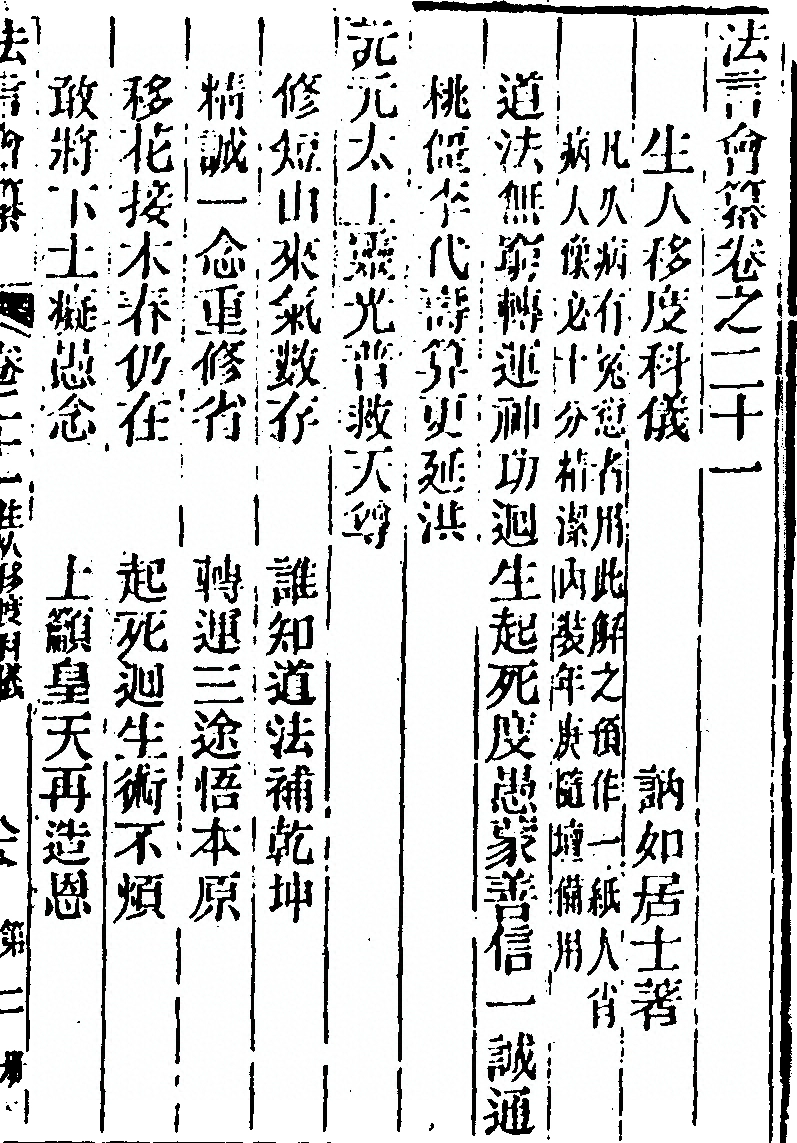 法言會纂卷之二十一
生人移度科儀　訥如居士著
凡久病有冤愆者用此解之預作一紙人肖
病人像必十分精潔內裝年庚隨壇備用
道法無窮轉運神功迴生起死度愚蒙善信一誠通
桃僵李代壽算更延洪
元太上靈光普救天尊
修短由來氣數存　誰知道法補乾坤
精誠一念重修省　轉運三途悟本原
移花接木春仍在　起死迴生術不煩
敢將下士癡愚念　上籲皇天再造恩
法言會纂　卷二十一生人移度科儀　第二